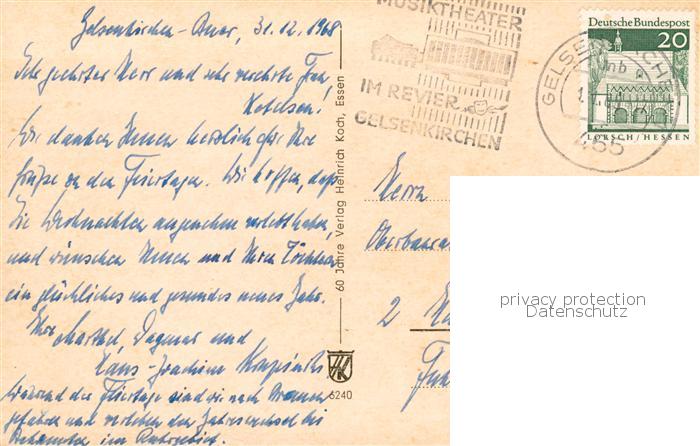 Gelsenkirchen-Buer, 31.12.1968
Sehr geehrter Herr und sehr verehrte Frau
Wir danken Ihnen herzlich für Ihre
Grüße zu den Feiertagen. Wir hoffen, daß
Sie Weihnachten angenehm verlebt haben,
und wünschen Ihnen und Ihren Töchtern
ein glückliches und gesundes neues Jahr.
Ihre Marthel, Dagmar und
Hans-Joachim
Während der Feiertage sind wir nach Bremen
gefahren und verleben den Jahreswechsel bei
Bekannten im Ruhrgebiet.
60 Jahre Verlag Heinrich Koch, Essen
HK
6240
MUSIKTHEATER
IM REVIER
GELSENKIRCHEN
GELSENKIRCHEN
mb
465
Deutsche Bundespost
20
LORSCH/HESSEN
Herrn
Oberbaurat
2
privacy protection
Datenschutz